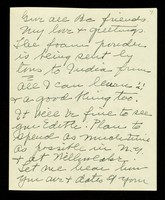 Our all Ba. friends
my love & greetings.
The foam powder
is being sent by
tons to India from
all I can learn
& a good thing too.
It will be fine to see
you Edith. Plan to
spend as much time
as possible in N.Y.
& at
Let me hear when
you are & date of your